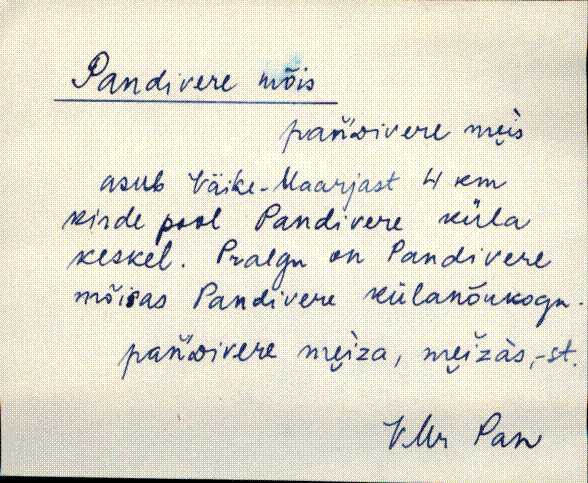 Pandivere mõis
pan̆divere mẹi̯s
asub Väike-Maarjast 4 km
kirde pool Pandivere küla
keskel. Praegu on Pandivere
mõisas Pandivere külanõukogu.
pan̆divere mẹi̯za, mẹi̯zàs, -st.
VMr Pan